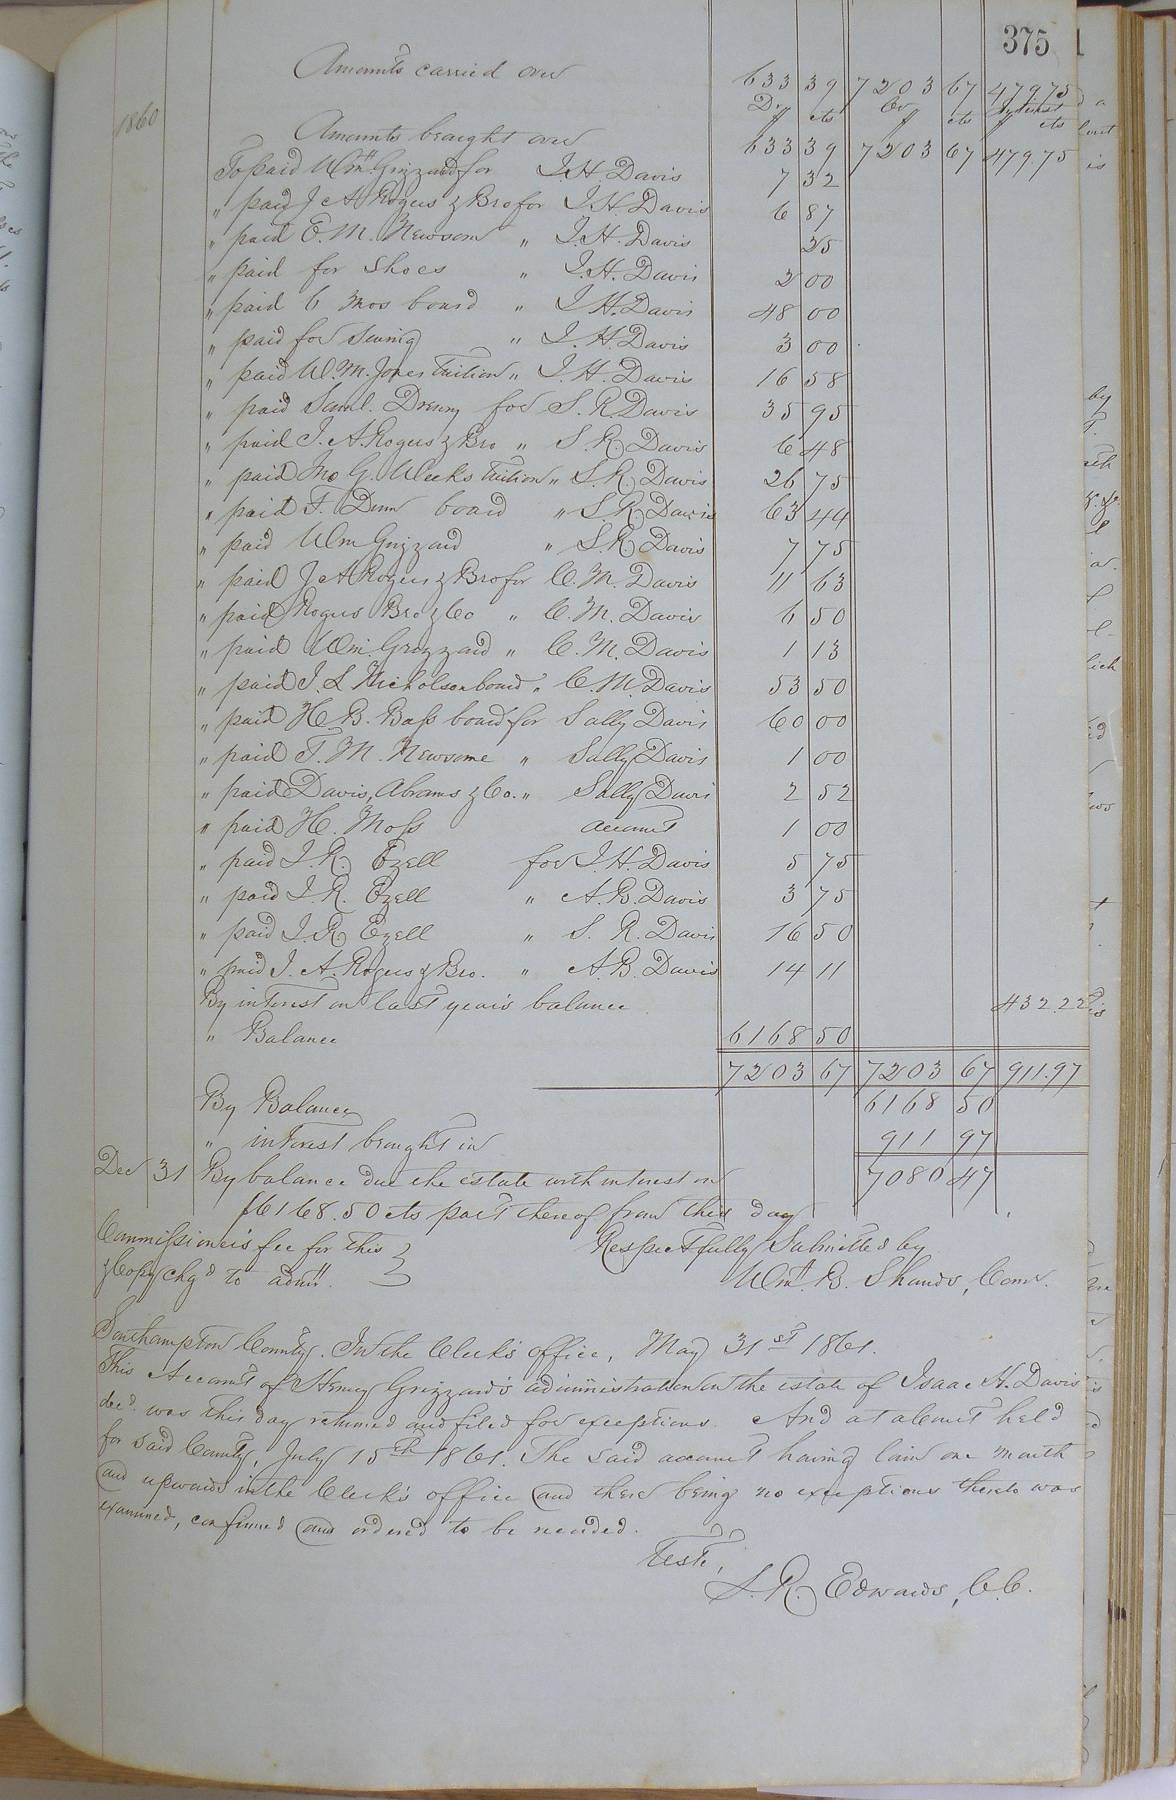 375
Amounts carried over 633 39 7203 67 479 75
Dr Cr Interest
1860 $ cts $ cts $ cts
Amounts brought over 633 39 7203 67 479 75
To paid Wm. Grizzard for J. H. Davis 7 32
" paid J A Rogers & Bro for J. H. Davis 6 87
" paid E. M. Newsom " J. H. Davis 25
" paid for Shoes " J. H. Davis 2 00
" paid 6 mos board " J. H. Davis 48 00
" paid for Sewing " J. H. Davis 3 00
" paid W. M. Jones tuition " J. H. Davis 16 58
" paid Saml. Drewry for S. R. Davis 35 95
" paid J. A. Rogers & Bro " S. R. Davis 6 48
" paid Jno G. Weeks tuition " S. R. Davis 26 75
" paid F. Dunn board " S R Davis 63 44
" paid Wm Grizzard " S. R. Davis 7 75
" paid J A Rogers & Bro for C. M. Davis 11 63
" paid Rogers Bro & Co " C. M. Davis 6 50
" paid Wm. Grizzard " C. M. Davis 1 13
" paid J. L Nicholson board " C. M. Davis 53 50
" paid H. B. Bass board for Sally Davis 60 00
" paid T. M. Newsome " Sally Davis 1 00
" paid Davis, Abrams & Co. " Sally Davis 2 52
" paid H. Moss account 1 00
" paid J. R. Ezell for J. H. Davis 5 75
" paid J. R. Ezell " A. B. Davis 3 75
" paid J. R. Ezell " S. R. Davis 16 50
" paid J. A. Rogers & Bro. " A. B. Davis 14 11
By interest on last year's balance 432.22
" Balance 6168 50
7203 67 7203 67 911.97
By Balance 6168 50
" interest brought in 911 97
Dec 31 By balance due the estate with interest on 7080 47
$6168.50 cts part thereof from this day
Commissioner's fee for this Respectfully Submitted by
& Copy chgd to admr. Wm. B. Shands, Comr.
Southampton County. In the Clerk's office, May 31st 1861.
This Account of Henry Grizzard's administration on the estate of Isaac H. Davis
decd. was this day returned and filed for exceptions. And at a Court held
for said County, July 15th 1861. The said account having lain one month
and upwards in the Clerk's office and there being no exceptions thereto was
examined, confirmed and ordered to be recorded.
Teste,
L. R. Edwards, C. C.